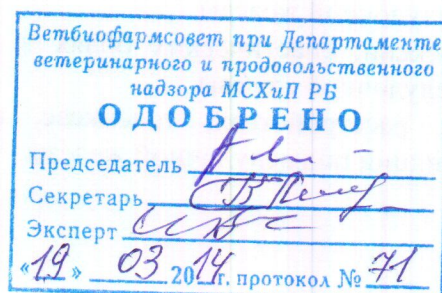 Ветбиофармсовет при Департаменте
ветеринарного и продовольственного
надзора МСХиП РБ
ОДОБРЕНО
Председатель
Секретарь
Эксперт
«19» 03 2014г. протокол № 71